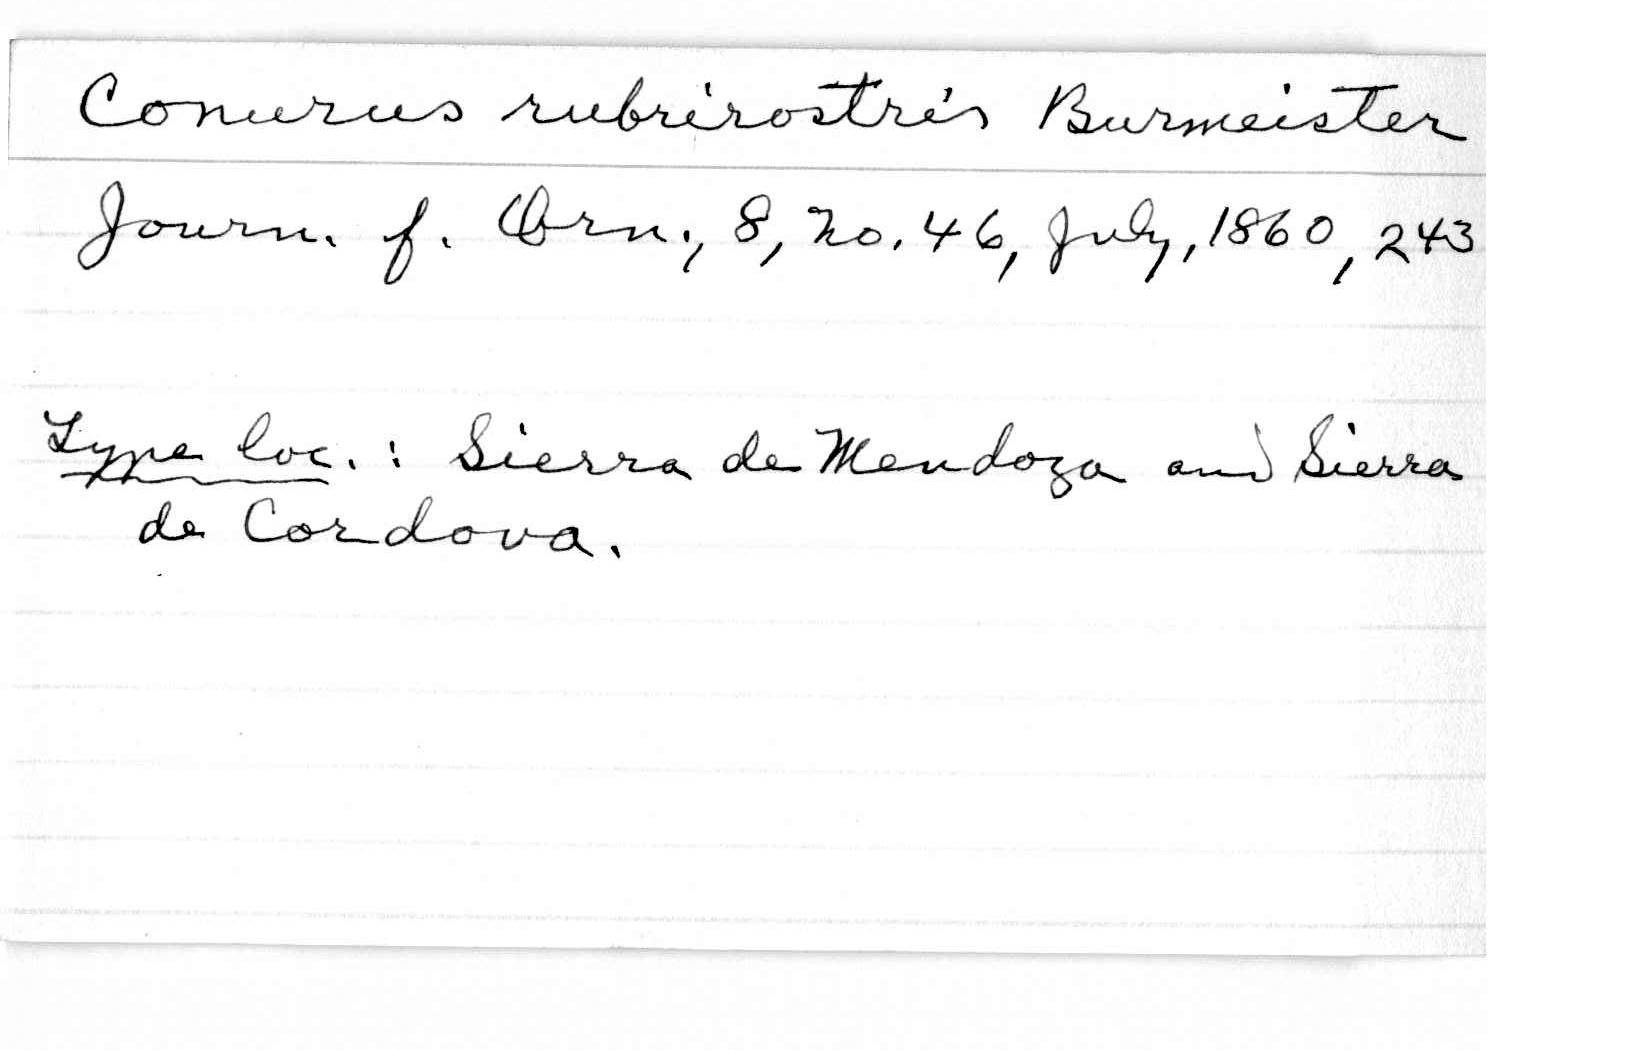 Conurus rubrirostris Burmeister
Journ. f. Orn., 8, no. 46, July, 1860, 243
Type loc. : Sierra de Mendoza and Sierra
de Cordova.